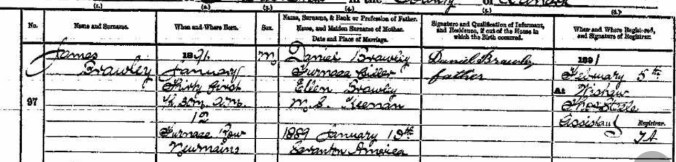 (1.) (2.) (3.) (4.) (5.) (6.)
No. Name and Surname. When and Where Born. Sex. Name, Surname, & Rank or Profession of Father. Name, and Maiden Surname of Mother. Date and Place of Marriage. Signature and Qualification of Informant, and Residence, if out of the House in which the Birth occurred. When and Where Registered, and Signature of Registrar.
97
James
Brawley
1891,
January
Thirty first
12
Furnace Row
Newmains
M
Daniel Brawley
Furnace Filler
Ellen Brawley
M.S. Keenan
1889 January 13th
Scranton America
Daniel Brawley
Father
1891
February 5th
At Wishaw
Assistant Registrar.